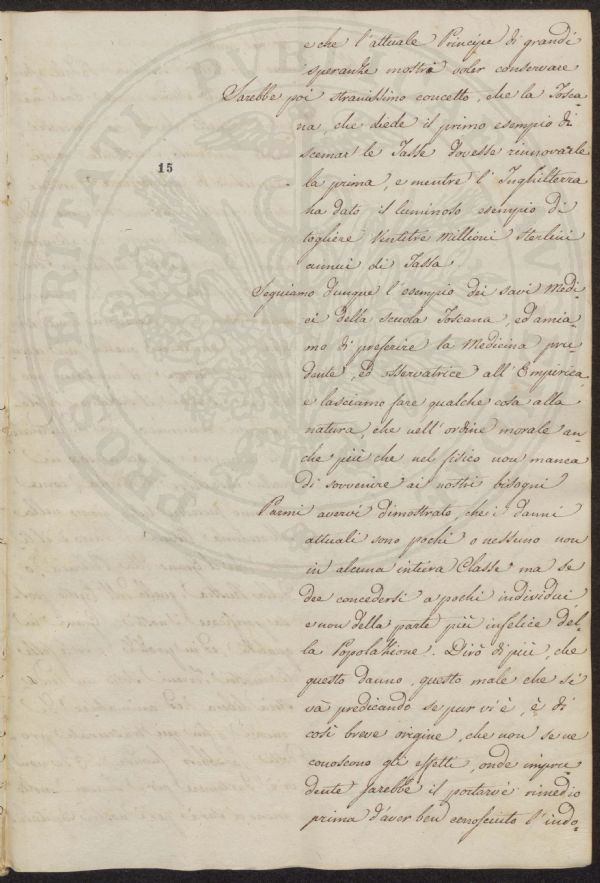 e che l'attuale Principe di grandi
speranze mostra voler conservare
Sarebbe poi stranissimo concetto, che la Tosca=
na, che diede il primo esempio di
scemar le Tasse dovesse rinnovarle
la prima, e mentre l'Inghilterra
ha dato il luminoso esempio di
togliere Ventitré Millioni Sterlini
annui di Tassa.
Seguiamo dunque l'esempio dei savi Medi=
ci della scuola Toscana, ed amia=
mo di preferire la Medicina pru=
dente, ed osservatrice all'Empirica
e lasciamo fare qualche cosa alla
natura, che nell'ordine morale an=
che più che nel fisico non manca
di sovvenire ai nostri bisogni
Parmi avervi dimostrato, che i danni
attuali sono pochi o nessuno non
in alcuna intiera Classe ma se
dee concedersi a pochi individui
e non della parte più infelice del=
la Popolazione. Dirò di più, che
questo danno, questo male che si
và predicando se pur vi è, è di
così breve origine, che non se ne
conoscono gli effetti, onde impru=
dente sarebbe il portarvi rimedio
prima d'aver ben conosciuto l'indo=
15
PROSPERITATI PVBLICAE